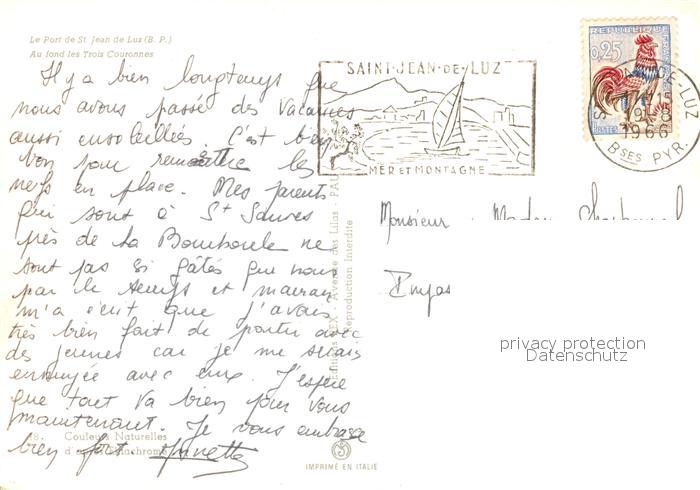 Le Port de St. Jean de Luz (B. P.)
Au fond les Trois Couronnes
Il y a bien longtemps que
nous avons passé des vacances
aussi ensoleillées. C'est bien
bon pour remettre les
nerfs en place. Mes parents
qui sont à St Sauves
près de La Bourboule ne
sont pas si gâtés que nous
par le temps et maman
m'a écrit que j'avais
très bien fait de partir avec
des jeunes car je me serais
ennuyée avec eux. J'espère
que tout va bien pour vous
maintenant. Je vous embrasse
bien fort.
Couleurs Naturelles
SAINT-JEAN-DE-LUZ
MER ET MONTAGNE
0,25
POSTES
1966
BSES PYR.
Avenue des Lilas - PAU
Reproduction Interdite
Monsieur
privacy protection
Datenschutz
IMPRIMÉ EN ITALIE